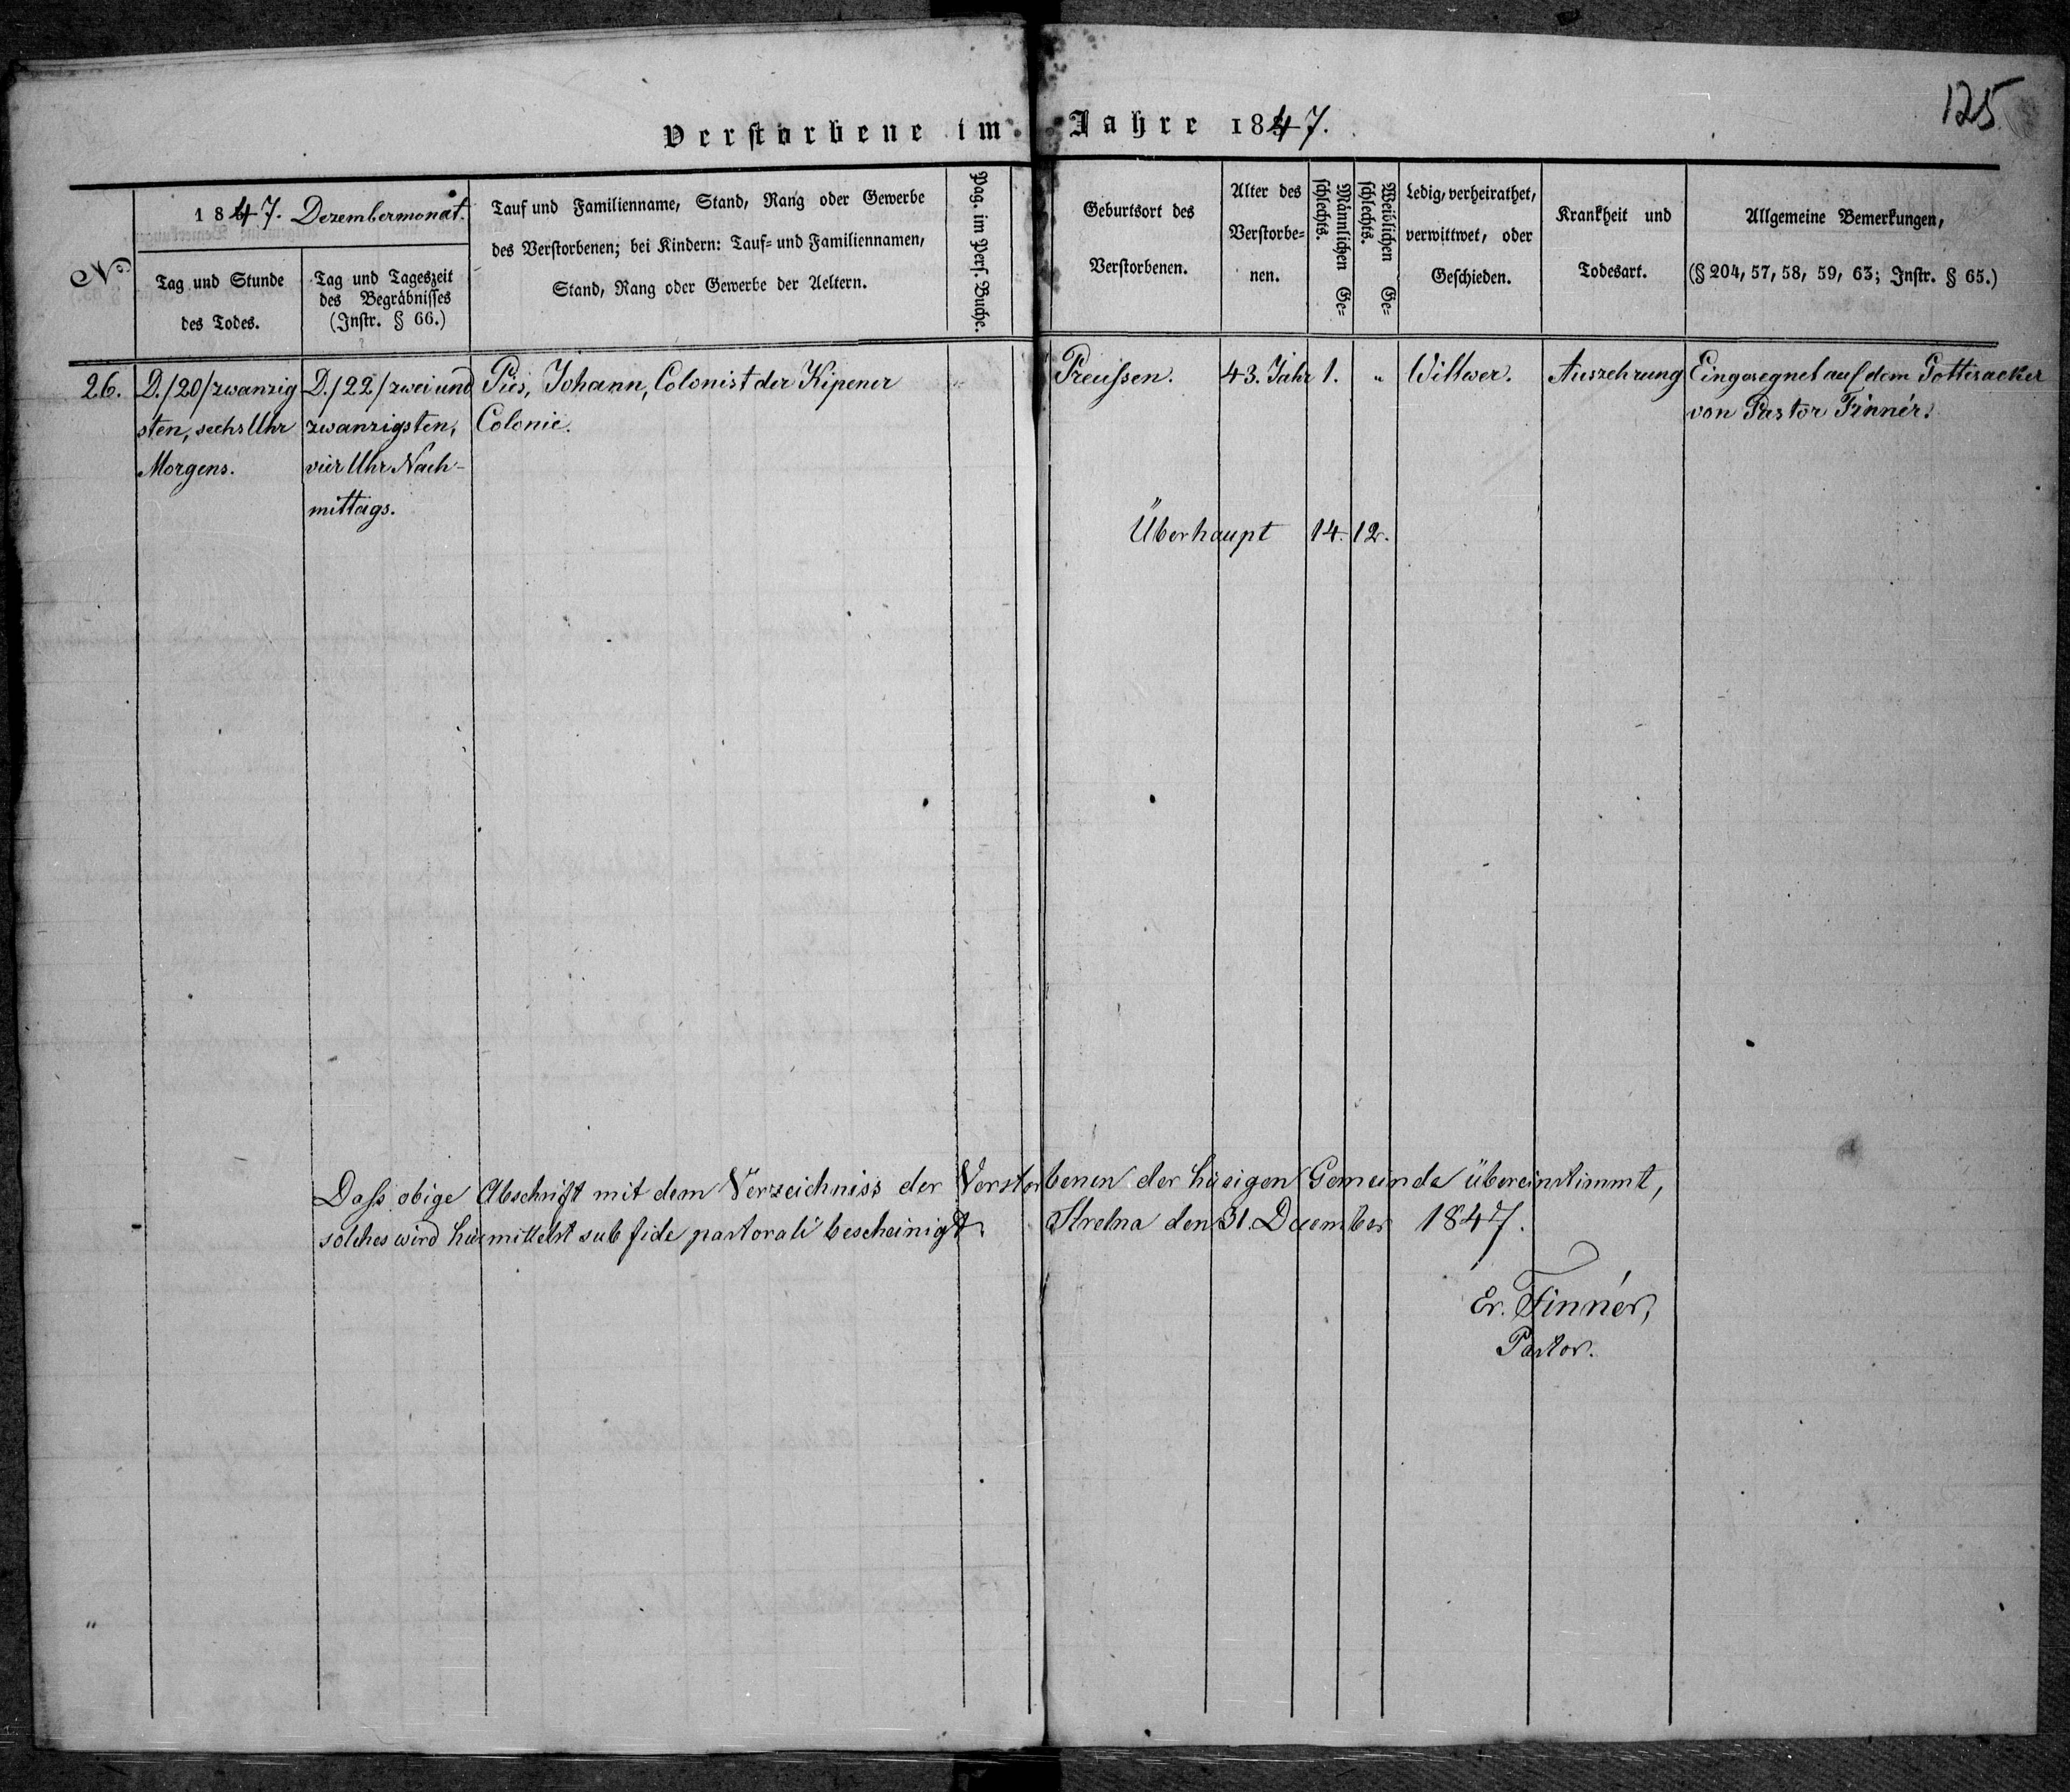 125.
Verstorbene im Jahre 1847.
No.
1847. Dezembermonat.
Tag und Stunde
des Todes.
Tag und Tageszeit
des Begräbnisses
(Instr. § 66.)
Tauf und Familienname, Stand, Rang oder Gewerbe
des Verstorbenen; bei Kindern: Tauf- und Familiennamen,
Stand, Rang oder Gewerbe der Aeltern.
Pag. im Pers. Buche.
Geburtsort des
Verstorbenen.
Alter des
Verstorbe-
nen.
Männlichen Ge-
schlechts.
Weiblichen Ge-
schlechts.
Ledig, verheirathet,
verwittwet, oder
Geschieden.
Krankheit und
Todesart.
Allgemeine Bemerkungen,
(§ 204, 57, 58, 59, 63; Instr. § 65.)
26.
D./20/zwanzig
sten, sechs Uhr
Morgens.
D./22/zwei und
zwanzigsten,
vier Uhr Nach-
mittags.
Pies, Johann, Colonist der Kipener
Colonie.
"
Preussen.
43. Jahr
1.
"
Wittwer.
Auszehrung
Eingesegnet auf dem Gottesacker
von Pastor Finnér.
Überhaupt 14. 12.
Dass obige Abschrift mit dem Verzeichniss der Verstorbenen der hiesigen Gemeinde übereinstimmt,
solches wird hiermittelst sub fide pastorali bescheinigt. Strelna den 31. December 1847.
Er. Finnér,
Pastor.
"